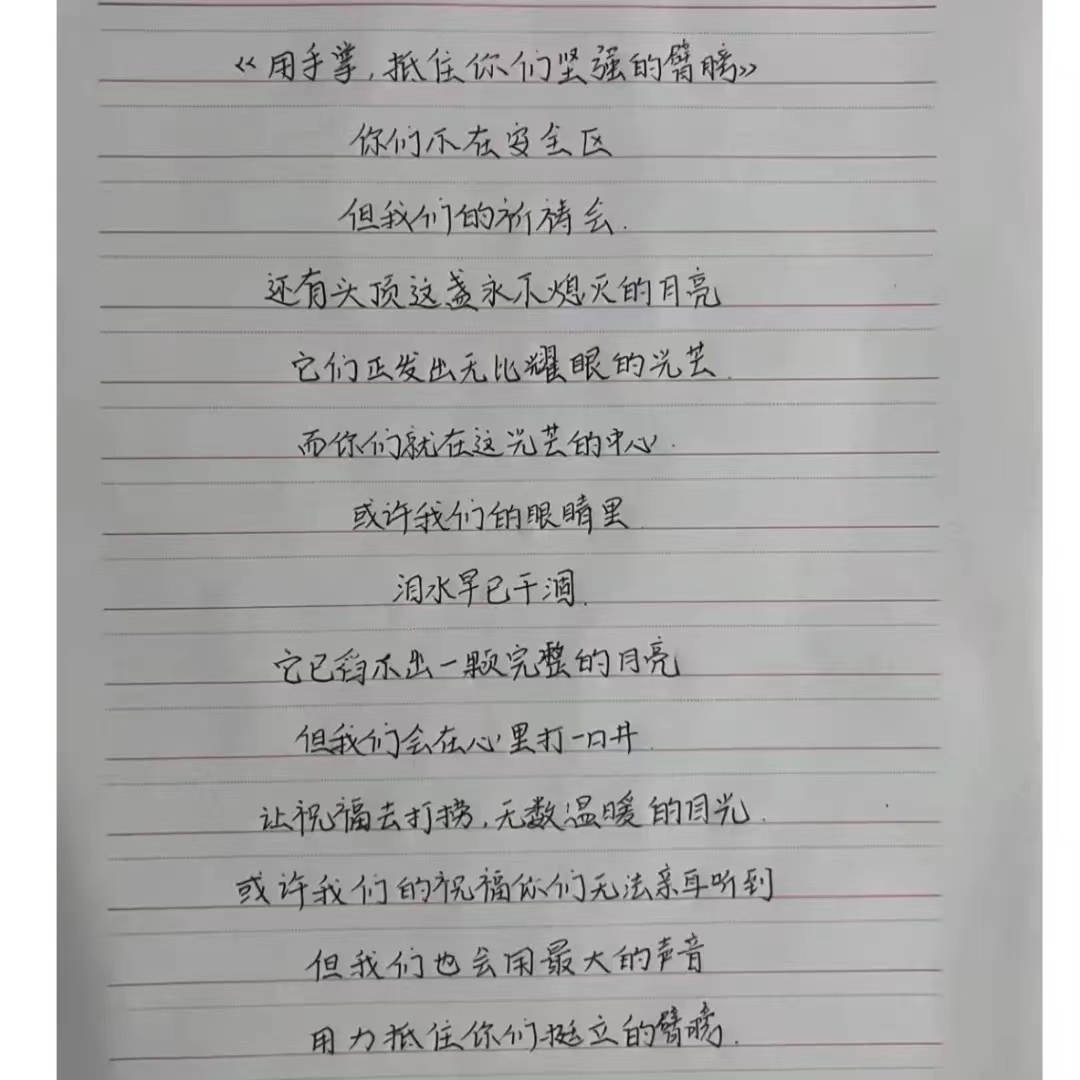 《用手掌，抵住你们坚强的臂膀》
你们不在安全区
但我们的祈祷会.
还有头顶这盏永不熄灭的月亮
它们正发出无比耀眼的光芒.
而你们就在这光芒的中心.
或许我们的眼睛里.
泪水早已干涸.
它已舀不出一颗完整的月亮
但我们会在心里打一口井.
让祝福去打捞，无数温暖的目光.
或许我们的祝福你们无法亲耳听到
但我们也会用最大的声音
用力抵住你们挺立的臂膀.